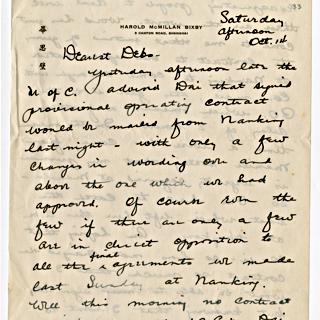 33
Saturday
afternoon
Oct. 1st
HAROLD McMILLAN BIXBY
5 CANTON ROAD, SHANGHAI
Dearest Debs-
Yesterday afternoon late the
M of C. advised Dai that signed
provisional operating contract
would be mailed from Nanking
last night - with only a few
changes in wording over and
above the one which we had
approved. Of course even the
few if there are only a few
are in direct opposition to
all the final agreements we made
last Sunday at Nanking.
Well this morning no contract